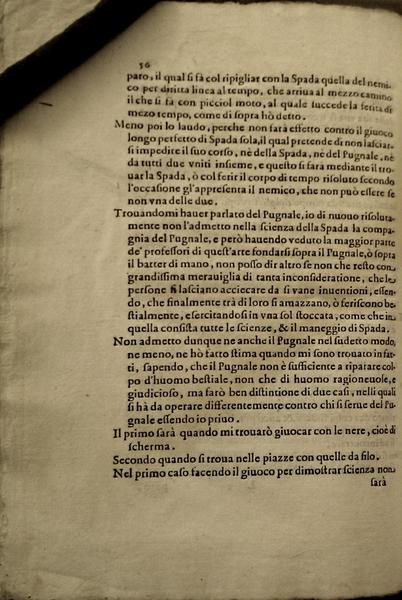 56
paro, il qual si fà col ripigliar con la Spada quella del nemi-
co per diritta linea al tempo, che arriua al mezzo camino
il che si fà con picciol moto, al quale succede la ferita di
mezo tempo, come di sopra hò detto.
Meno poi lo laudo, perche non farà effetto contro il giuoco
longo perfetto di Spada sola, il qual pretende di non lasciar-
si impedire il suo corso, nè della Spada, nè del Pugnale, nè
da tutti due vniti insieme, e questo si farà mediante il tro-
uar la Spada, ò col ferir il corpo di tempo risoluto secondo
l'occasione gl'appresenta il nemico, che non può essere se
non vna delle due.
Trouandomi hauer parlato del Pugnale, io di nuouo risoluta-
mente non l'admetto nella scienza della Spada la compa-
gnia del Pugnale, e però hauendo veduto la maggior parte
de' professori di quest'arte fondarsi sopra il Pugnale, ò sopra
il batter di mano, non posso dir altro se non che resto con
grandissima merauiglia di tanta inconsideratione, che le
persone si lasciano acciecare da sì vane inuentioni, essen-
do, che finalmente trà di loro si amazzano, ò feriscono be-
stialmente, esercitandosi in vna sol stoccata, come che in
quella consista tutte le scienze, & il maneggio di Spada.
Non admetto dunque ne anche il Pugnale nel sudetto modo,
ne meno, ne hò fatto stima quando mi sono trouato in fat-
ti, sapendo, che il Pugnale non è sufficiente a riparare col-
po d'huomo bestiale, non che di huomo ragioneuole, e
giudicioso, ma farò ben distintione di due casi, nelli quali
si hà da operare differentemente contro chi si serue del Pu-
gnale essendo io priuo.
Il primo sarà quando mi trouarò giuocar con le nere, cioè di
scherma.
Secondo quando si troua nelle piazze con quelle da filo.
Nel primo caso facendo il giuoco per dimostrar scienza non
sarà